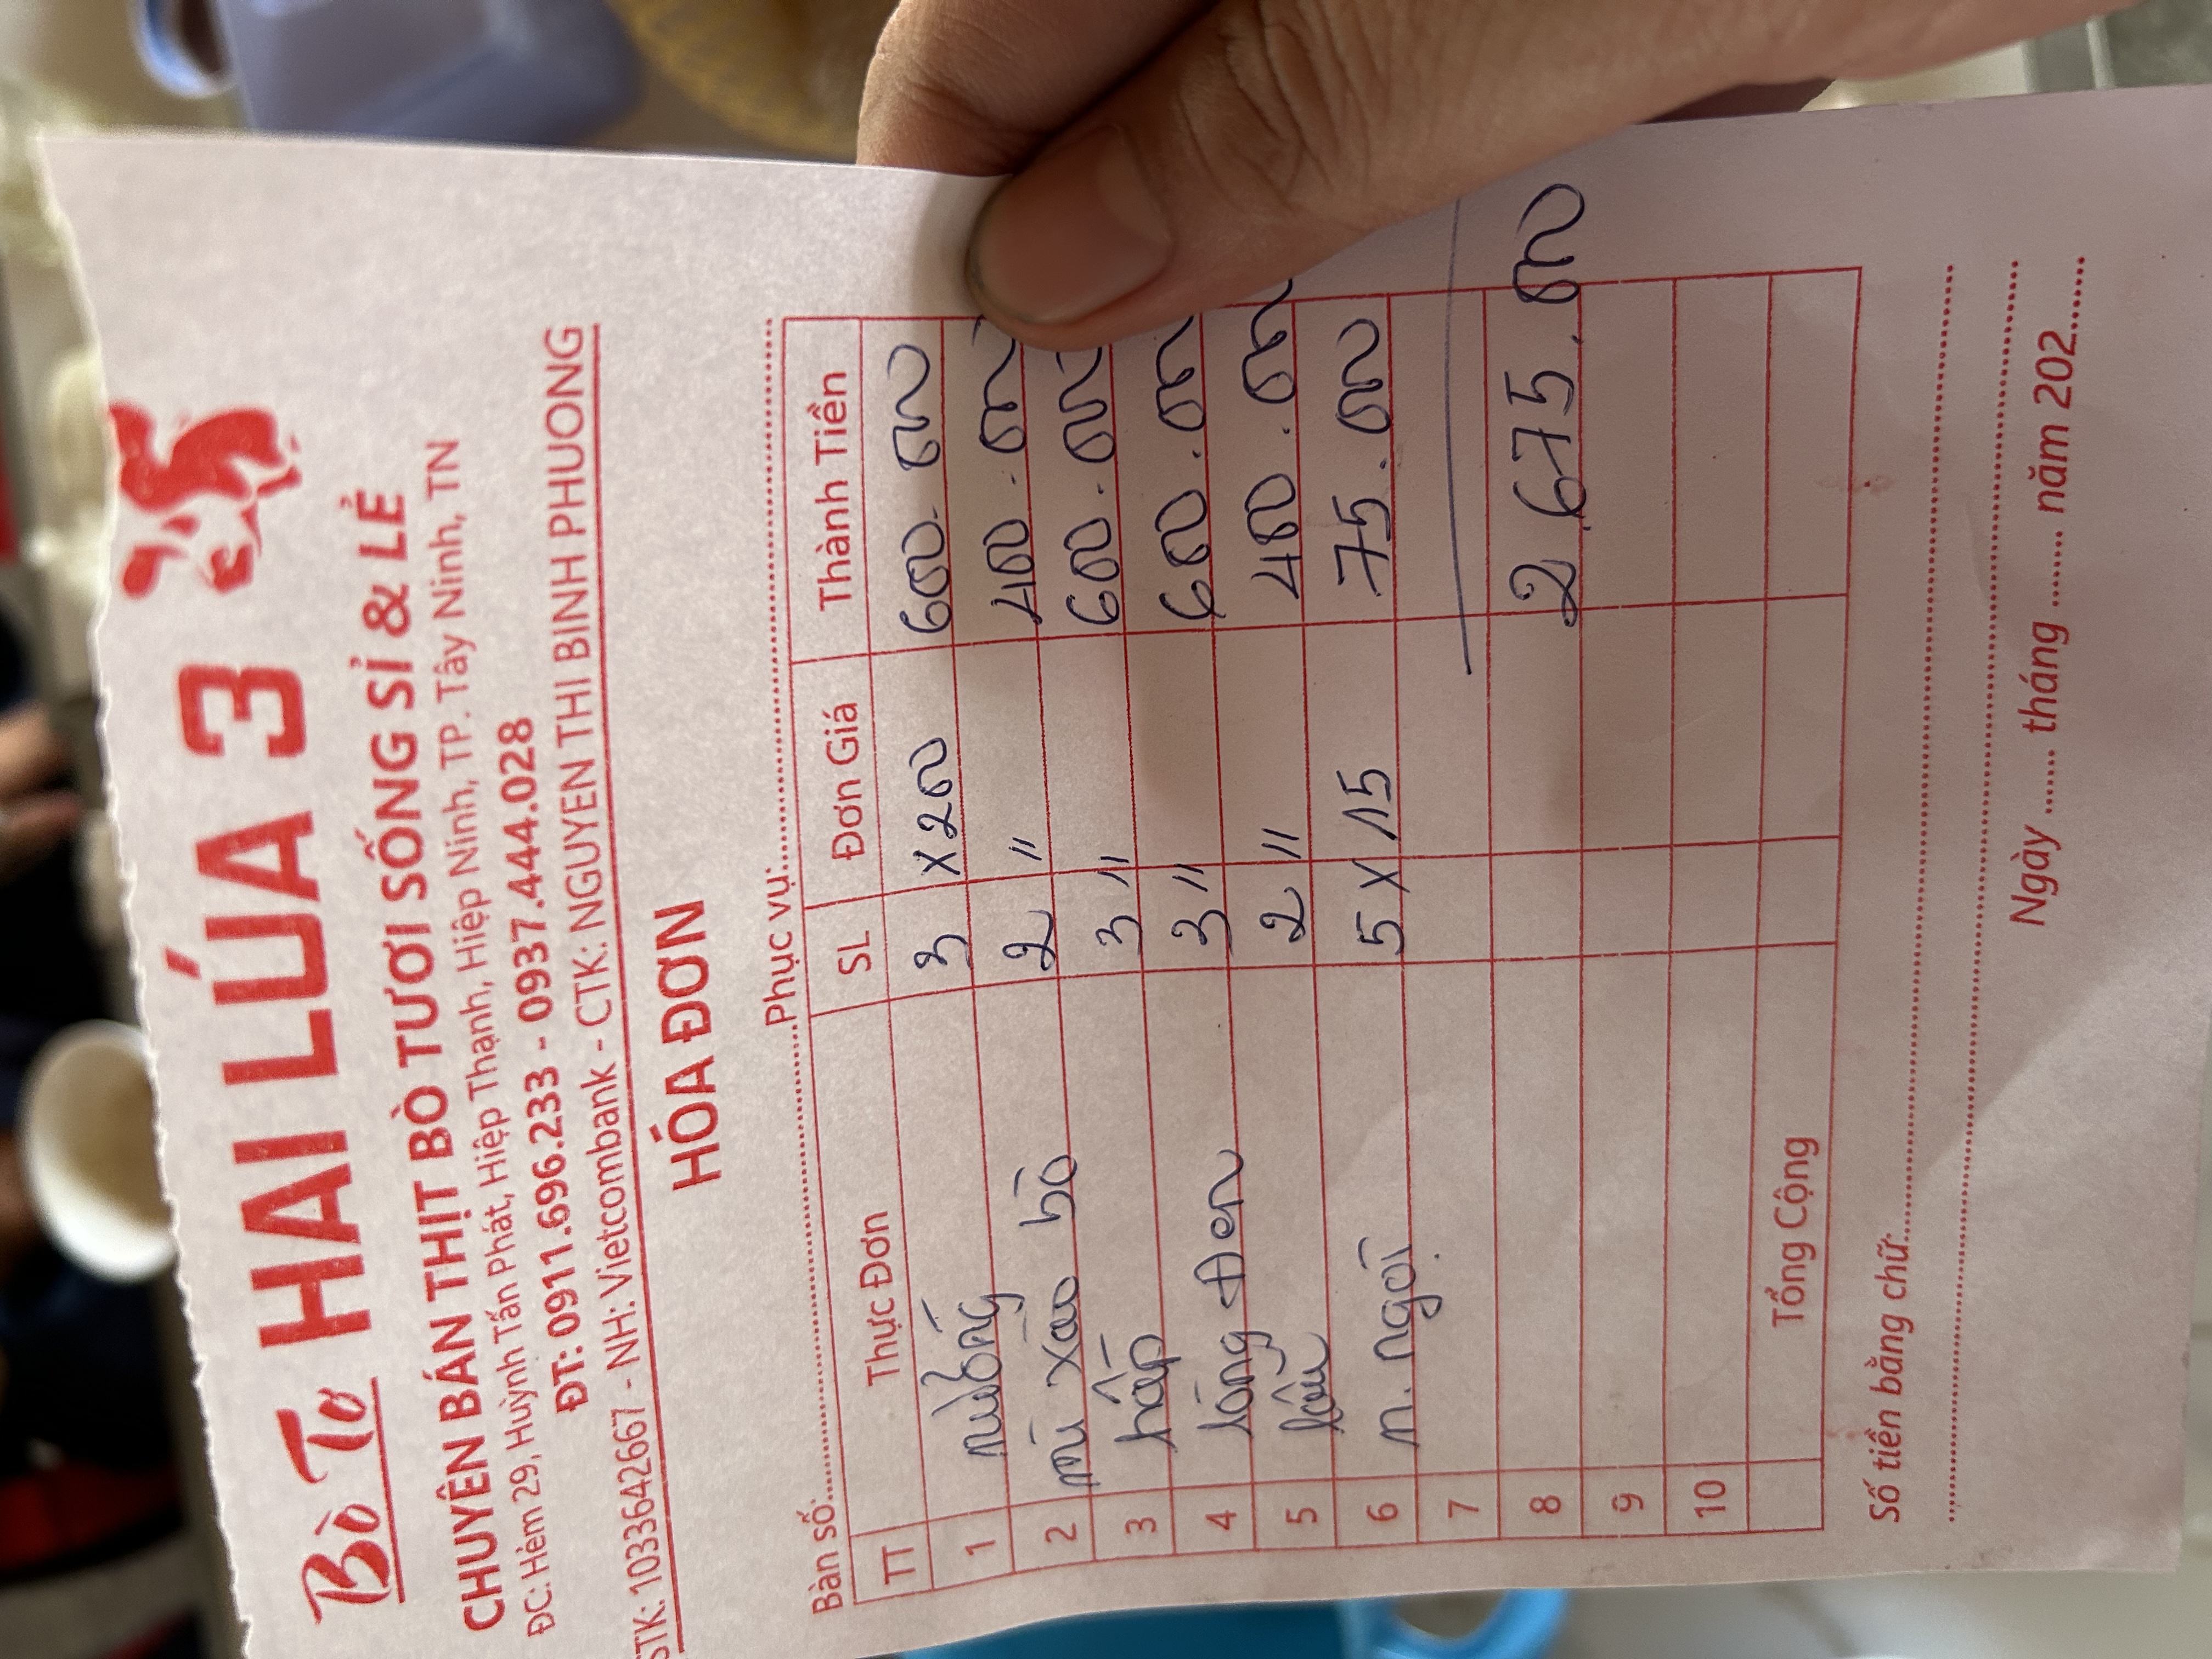 Bò Tơ HAI LÚA 3
CHUYÊN BÁN THỊT BÒ TƯƠI SỐNG SỈ & LẺ
ĐC: Hẻm 29, Huỳnh Tấn Phát, Hiệp Thạnh, Hiệp Ninh, TP. Tây Ninh, TN
ĐT: 0911.696.233 - 0937.444.028
STK: 1033642667 - NH: Vietcombank - CTK: NGUYEN THI BINH PHUONG
HÓA ĐƠN
Bàn số:.......... Phục vụ:..........
TT Thực Đơn SL Đơn Giá Thành Tiền
1 nướng 3 x 200 600.000
2 mì xào bò 2 " 400.000
3 hấp 3 " 600.000
4 lòng Đen 3 " 600.000
5 lẩu 2 " 400.000
6 n. ngọt 5 x 15 75.000
7
8 2.675.000
9
10
Tổng Cộng
Số tiền bằng chữ:..........
Ngày ....... tháng ........ năm 202.......